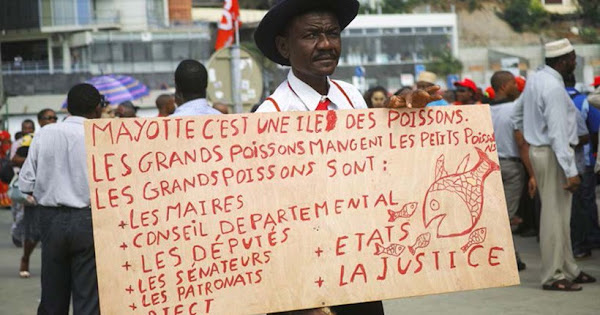 MAYOTTE C'EST UNE ILE DES POISSONS.
LES GRANDS POISSONS MANGENT LES PETITS POISSONS
LES GRANDS POISSONS SONT :
+ LES MAIRES
+ CONSEIL DEPARTEMENTAL
+ LES DÉPUTÉS
+ LES SÉNATEURS
+ LES PATRONATS
+ ETATS
+ LA JUSTICE